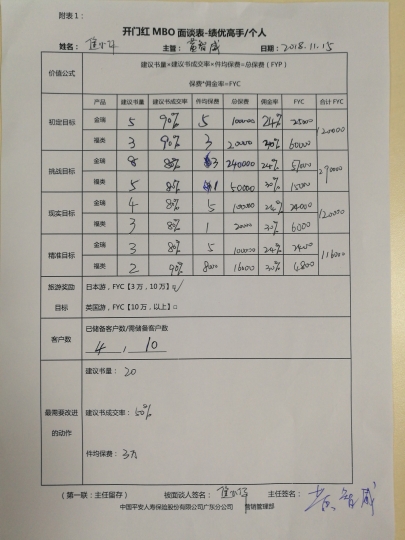 附表1：
开门红 MBO 面谈表-绩优高手/个人
姓名： 主管：黄智威 日期：2018.11.15
价值公式 建议书量×建议书成交率×件均保费=总保费（FYP）
保费*佣金率=FYC
产品 建议书量 建议书成交率 件均保费 总保费 佣金率 FYC 合计 FYC
初定目标 金瑞 5 90% 5 100000 24% 25000 120000
福类 3 90% 3 20000 30% 60000
挑战目标 金瑞 8 80% 3 240000 24% 57000 290000
福类 5 80% 1 50000 30% 15000
现实目标 金瑞 4 80% 5 100000 24% 24000 120000
福类 3 80% 1 20000 30% 6000
精准目标 金瑞 3 80% 5 100000 24% 2400 116000
福类 2 90% 8000 16000 30% 4800
旅游奖励 日本游，FYC【3万，10万】☑
目标 美国游，FYC【10万，以上】□
客户数 已储备客户数/需储备客户数
4 , 10
建议书量：20
最需要改进 建议书成交率：50%
的动作
件均保费：3万
（第一联：主任留存） 被面谈人签名： 主任签名：黄智威
中国平安人寿保险股份有限公司广东分公司 营销管理部